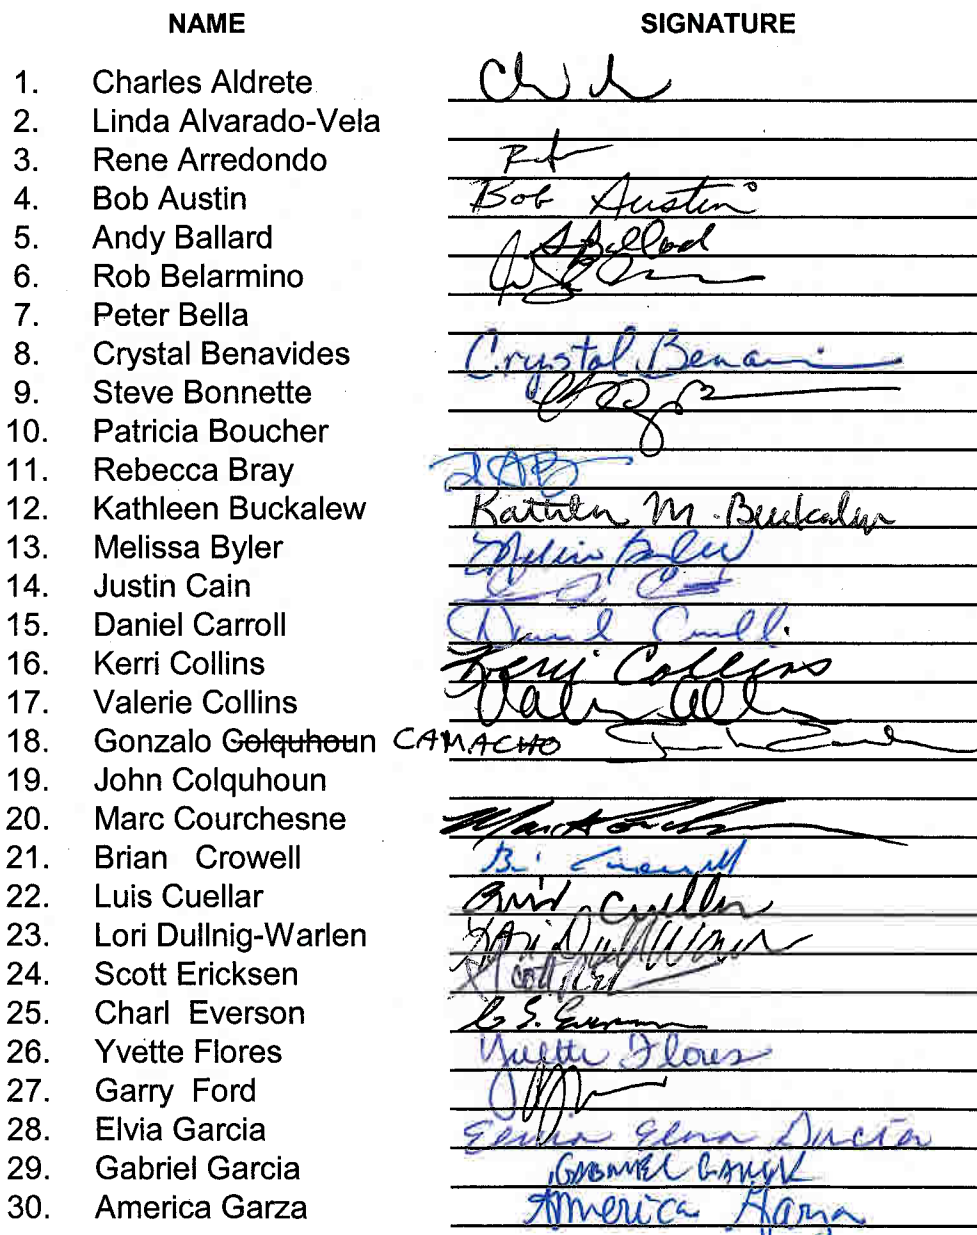 NAME SIGNATURE
1. Charles Aldrete
2. Linda Alvarado-Vela
3. Rene Arredondo
4. Bob Austin Bob Austin
5. Andy Ballard A Ballard
6. Rob Belarmino
7. Peter Bella
8. Crystal Benavides Crystal
9. Steve Bonnette
10. Patricia Boucher
11. Rebecca Bray
12. Kathleen Buckalew Kathleen M. Buckalew
13. Melissa Byler Melissa Byler
14. Justin Cain
15. Daniel Carroll Daniel Carroll
16. Kerri Collins Kerri Collins
17. Valerie Collins
18. Gonzalo Colquhoun CAMACHO
19. John Colquhoun
20. Marc Courchesne
21. Brian Crowell
22. Luis Cuellar Cuellar
23. Lori Dullnig-Warlen Lori
24. Scott Ericksen Scott
25. Charl Everson
26. Yvette Flores Yvette Flores
27. Garry Ford
28. Elvia Garcia Elvia Elena Garcia
29. Gabriel Garcia GABRIEL GARCIA
30. America Garza America Garza